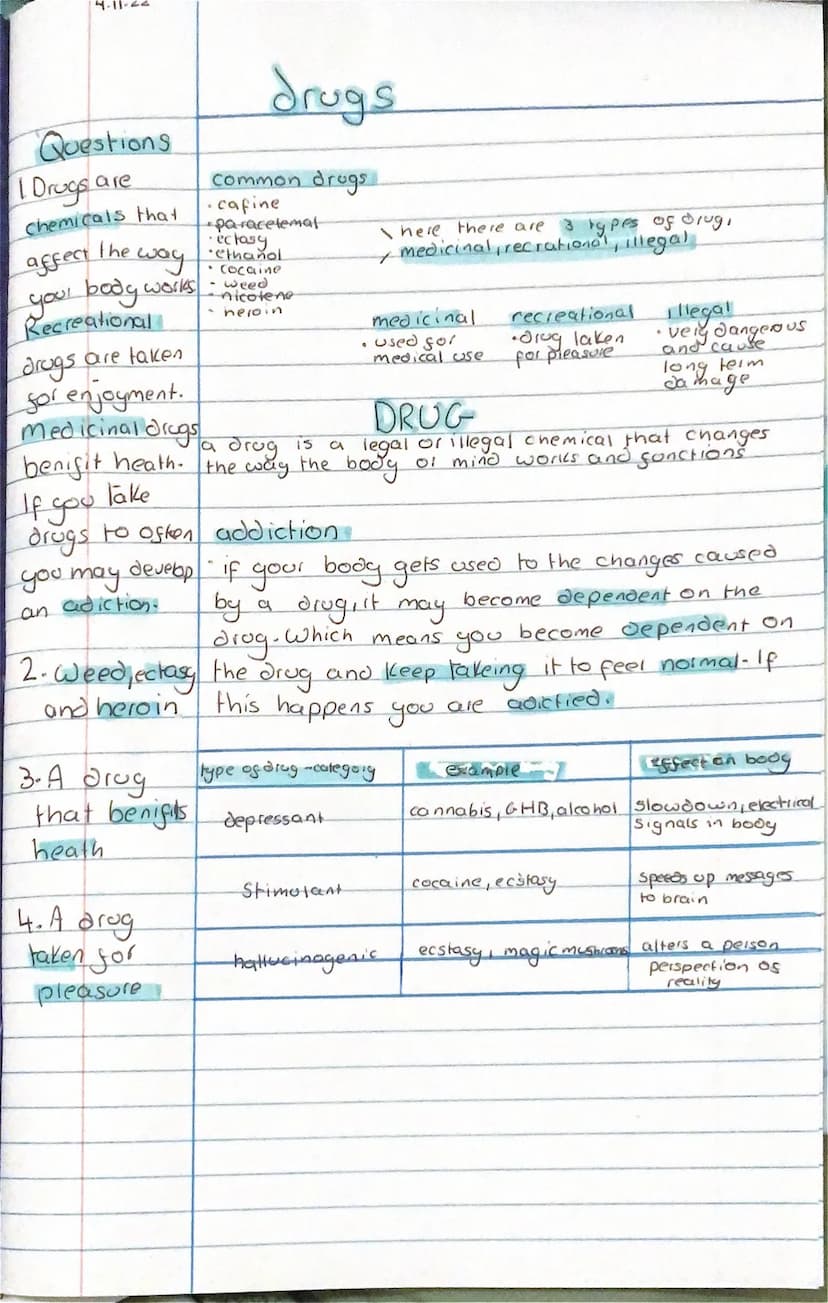 4-11-22
drugs
Questions
1 Drugs are
chemicals that
affect the way
your body works
Recreational
drugs are taken
for enjoyment.
medicinal drugs
benifit heath.
If you take
drugs to often
you may develop
an adiction.
2. Weed, ectasy
and heroin
3. A drug
that benifits
heath
4. A drug
taken for
pleasure
common drugs
· cafine
· paracetemal
· ectasy
· ethanol
· cocaine
· weed
· nicotene
· heroin
here there are 3 types of drug,
medicinal, recrational, illegal
medicinal
· used for
medical use
recreational
· drug taken
for pleasure
illegal
· very dangerous
and cause
long term
damage
DRUG
a drug is a legal or illegal chemical that changes
the way the body or mind works and fonctions
addiction
· if your body gets used to the changes caused
by a drug, it may become dependent on the
drug. Which means you become dependent on
the drug and keep takeing it to feel normal. If
this happens you are adictied.
type of drug - category example Effect on body
depressant cannabis, GHB, alcohol slowdown, electrical
signals in body
Stimulant cocaine, ecstasy speeds up messages
to brain
hallucinogenic ecstasy, magic mushrooms alters a person
perspection of
reality